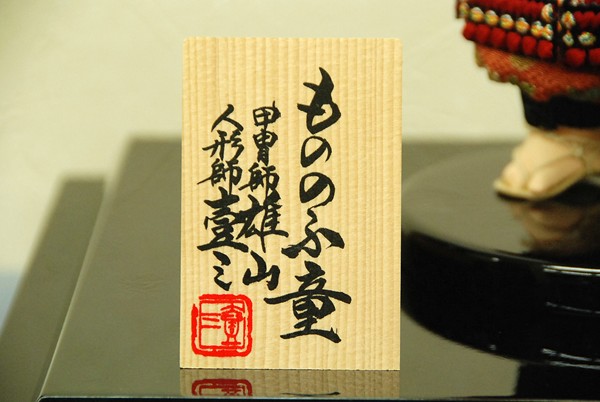 もののふ童
甲冑師雄山
人形師壹三
壹三